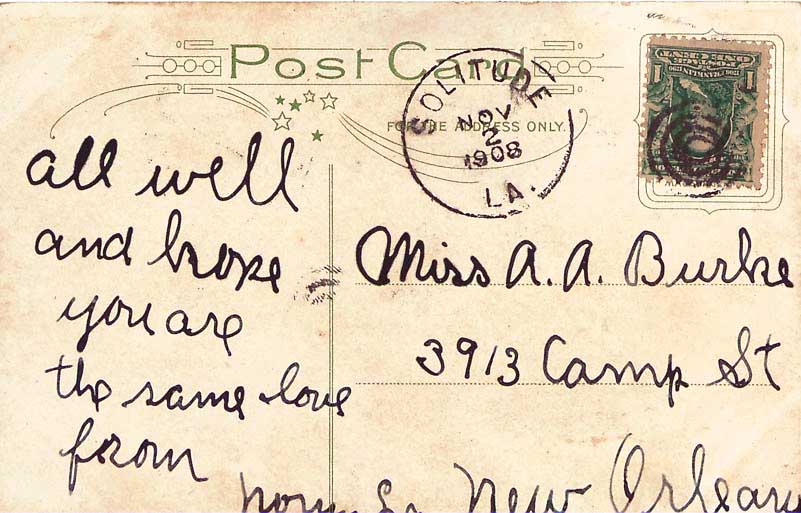 Post Card
FOR THE ADDRESS ONLY.
SOLITUDE
NOV
2
1908
LA.
all well
and hope
you are
the same love
from
Miss A. A. Burke
3913 Camp St
New Orleans